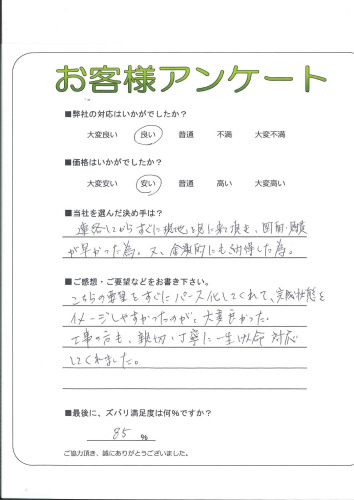 お客様アンケート
■弊社の対応はいかがでしたか？
大変良い 良い 普通 不満 大変不満
■価格はいかがでしたか？
大変安い 安い 普通 高い 大変高い
■当社を選んだ決め手は？
連絡してからすぐに現地を見に来て頂き、図面・見積
が早かった為。又、金額的にも納得した為。
■ご感想・ご要望などをお書き下さい。
こちらの要望をすぐにパース化してくれて、完成状態を
イメージしやすかったのが、大変良かった。
工事の方も、親切・丁寧に一生けん命 対応
してくれました。
■最後に、ズバリ満足度は何％ですか？
85 %
ご協力頂き、誠にありがとうございました。